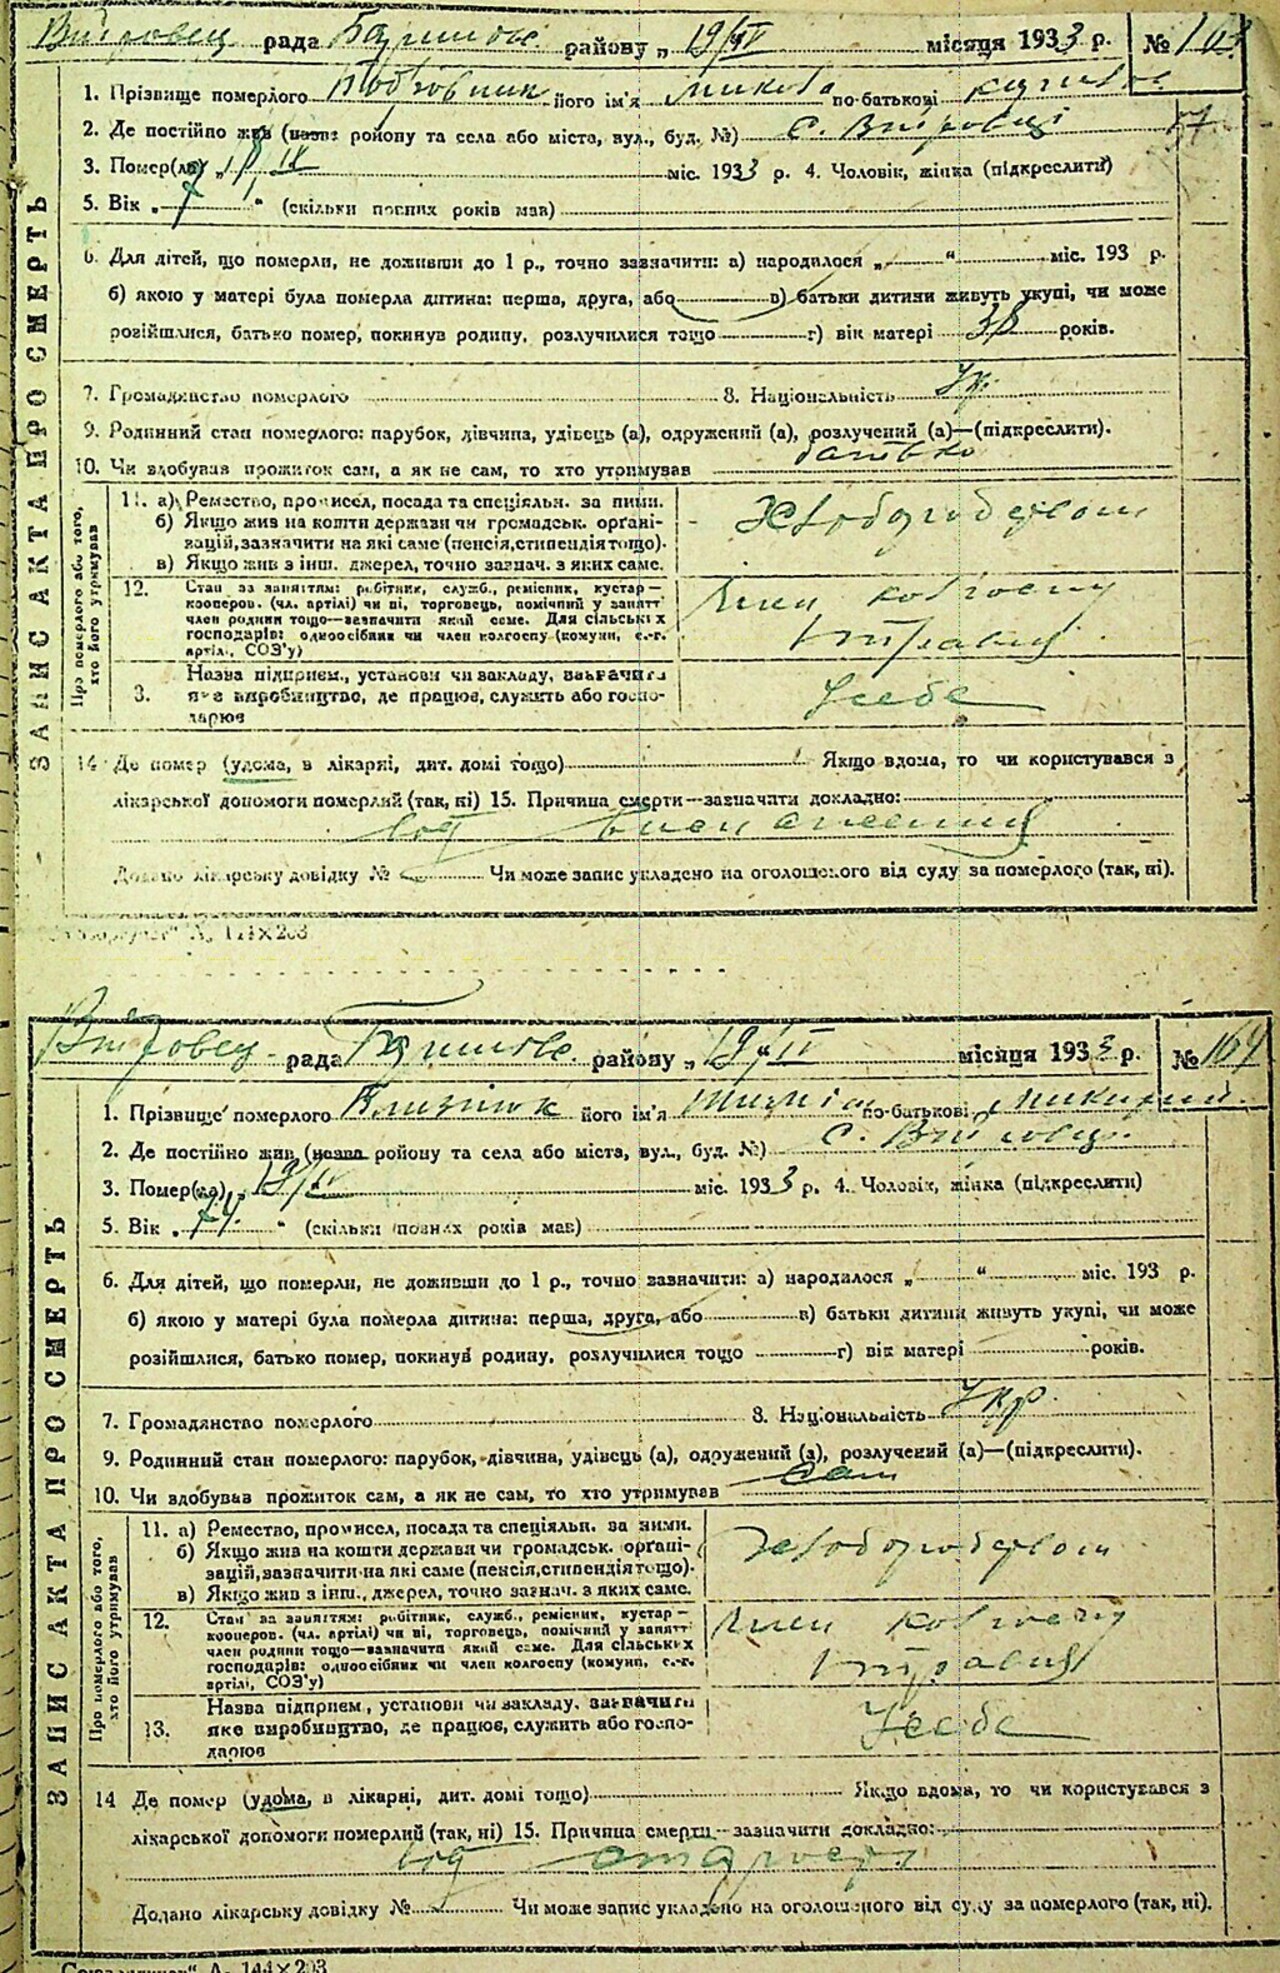 рада району „ 19/IV місяця 1933 р. № 163
1. Прізвище померлого його ім'я Микола по-батькові
2. Де постійно жив (назва району та села або міста, вул., буд. №) с.
3. Помер(ла) „ IV міс. 1933 р. 4. Чоловік, жінка (підкреслити)
5. Вік „ 7 “ (скільки повних років мав)
6. Для дітей, що померли, не доживши до 1 р., точно зазначити: а) народилося „ “ міс. 193 р.
б) якою у матері була померла дитина: перша, друга, або в) батьки дитини живуть укупі, чи може
розійшлися, батько помер, покинув родину, розлучилися тощо г) вік матері 38 років.
7. Громадянство померлого 8. Національність Укр.
9. Родинний стан померлого: парубок, дівчина, удівець (а), одружений (а), розлучений (а)—(підкреслити).
10. Чи здобував прожиток сам, а як не сам, то хто утримував батько
ЗАПИС АКТА ПРО СМЕРТЬ
Про померлого або того, хто його утримував
11. а) Ремество, промисел, посада та спеціяльн. за ними. Хлібороб
б) Якщо жив на кошти держави чи громадськ. орґані-
зацій, зазначити на які саме (пенсія, стипендія тощо).
в) Якщо жив з інш. джерел, точно зазнач. з яких саме.
12. Стан за заняттям: робітник, служб., ремісник, кустар— Член колгоспу
кооперов. (чл. артілі) чи ні, торговець, помічний у занятт
член родини тощо—зазначити який саме. Для сільських
господарів: одноосібник чи член колгоспу (комуни, с.-г.
артілі, СОЗ'у)
Назва підприєм., установи чи закладу, зазначити
3. яке виробництво, де працює, служить або госпо- себе
дарює
14 Де помер (удома, в лікарні, дит. домі тощо) Якщо вдома, то чи користувався з
лікарської допомоги померлий (так, ні) 15. Причина смерти—зазначити докладно:
від виснаження
Додано лікарську довідку № Чи може запис укладено на оголошеного від суду за померлого (так, ні).
144×203
рада району „ 19/IV місяця 1933 р. № 164
1. Прізвище померлого його ім'я по-батькові
2. Де постійно жив (назва району та села або міста, вул., буд. №) с.
3. Помер(ла) „ 19/IV міс. 1933 р. 4. Чоловік, жінка (підкреслити)
5. Вік „ 74 “ (скільки повних років мав)
6. Для дітей, що померли, не доживши до 1 р., точно зазначити: а) народилося „ “ міс. 193 р.
б) якою у матері була померла дитина: перша, друга, або в) батьки дитини живуть укупі, чи може
розійшлися, батько помер, покинув родину, розлучилися тощо г) вік матері років.
7. Громадянство померлого 8. Національність Укр.
9. Родинний стан померлого: парубок, дівчина, удівець (а), одружений (а), розлучений (а)—(підкреслити).
10. Чи здобував прожиток сам, а як не сам, то хто утримував Сам
ЗАПИС АКТА ПРО СМЕРТЬ
Про померлого або того, хто його утримував
11. а) Ремество, промисел, посада та спеціяльн. за ними. Хлібороб
б) Якщо жив на кошти держави чи громадськ. орґані-
зацій, зазначити на які саме (пенсія, стипендія тощо).
в) Якщо жив з інш. джерел, точно зазнач. з яких саме.
12. Стан за заняттям: робітник, служб., ремісник, кустар— Член колгоспу
кооперов. (чл. артілі) чи ні, торговець, помічний у занятт
член родини тощо—зазначити який саме. Для сільських
господарів: одноосібник чи член колгоспу (комуни, с.-г.
артілі, СОЗ'у)
Назва підприєм., установи чи закладу, зазначити
13. яке виробництво, де працює, служить або госпо- себе
дарює
14 Де помер (удома, в лікарні, дит. домі тощо) Якщо вдома, то чи користувався з
лікарської допомоги померлий (так, ні) 15. Причина смерти—зазначити докладно:
від старости
Додано лікарську довідку № Чи може запис укладено на оголошеного від суду за померлого (так, ні).
144×203